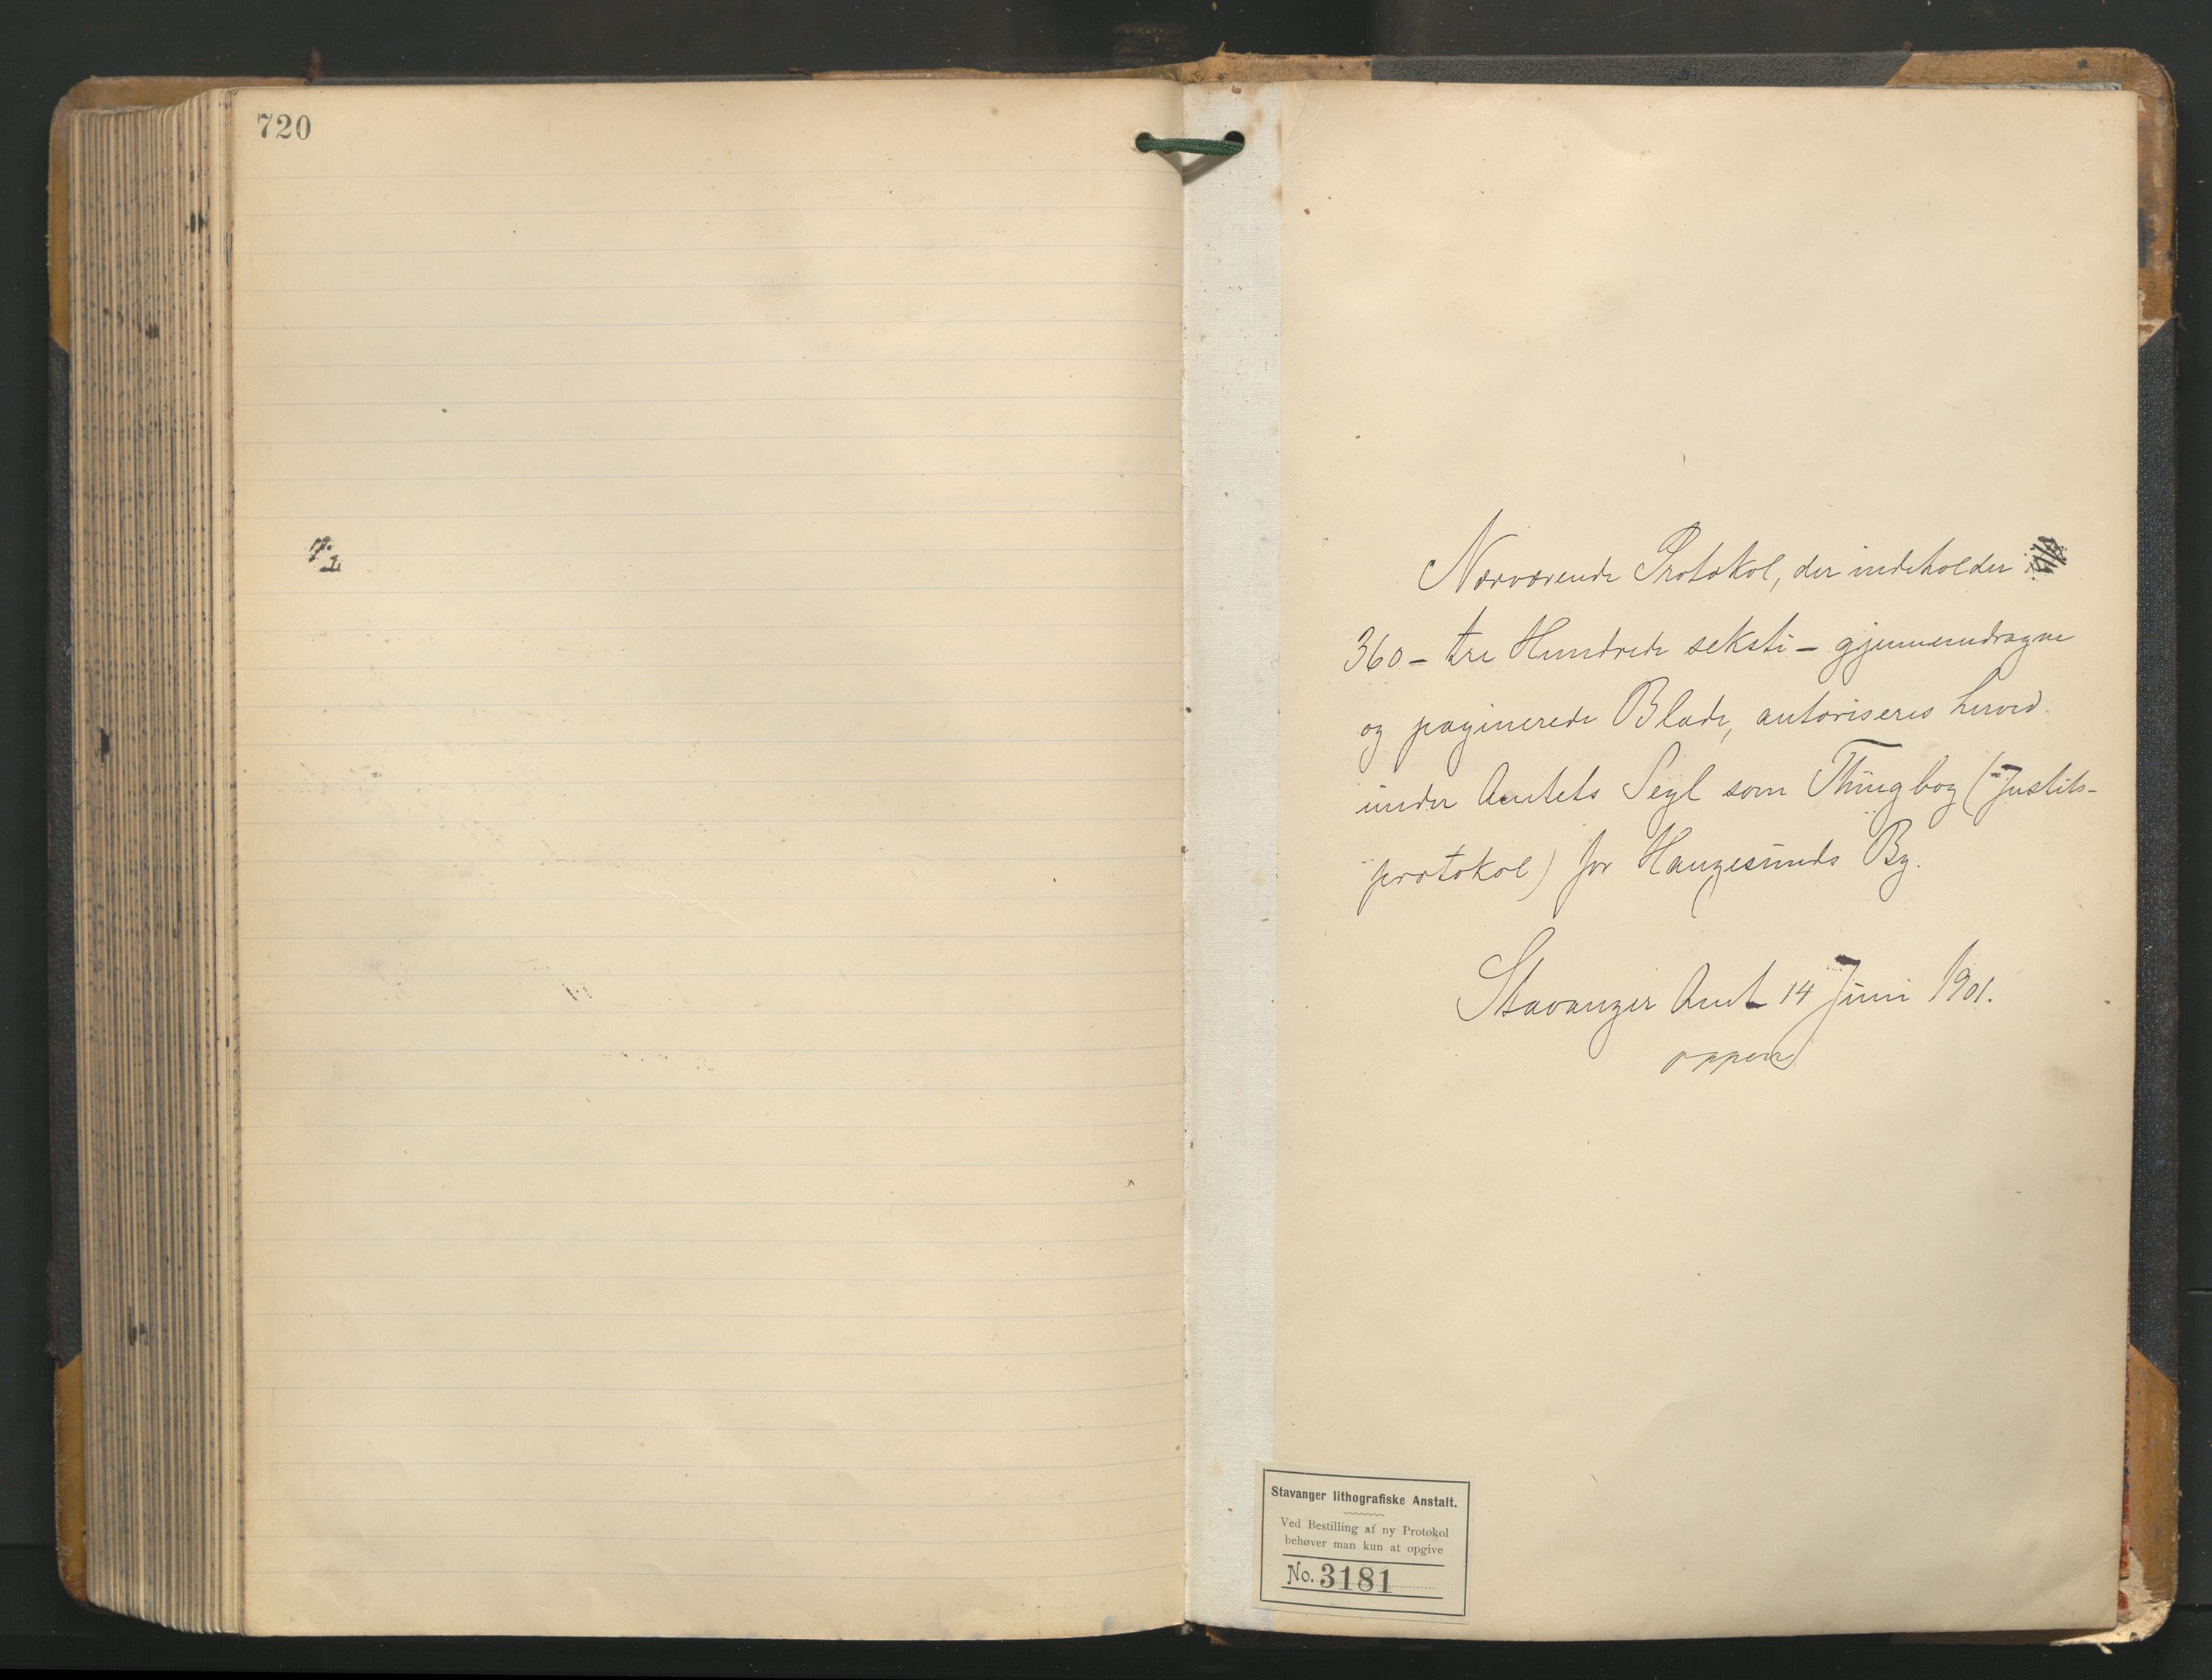 720
Nærværende Protokol, der indeholder
360 – tre Hundrede seksti – gjennemdragne
og paginerede Blade, autoriseres herved
under Amtets Segl som Thingbog (Justits-
protokol) for Haugesunds By.
Stavanger Amt 14 Juni 1901.
Stavanger lithografiske Anstalt.
Ved Bestilling af ny Protokol
behøver man kun at opgive
No. 3181